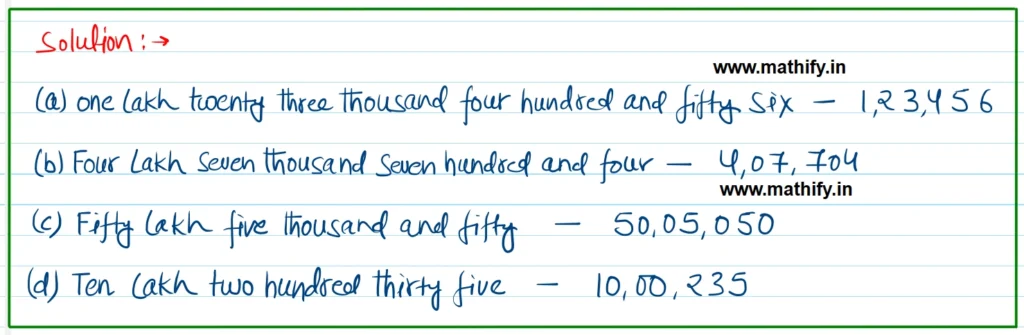 Solution :→
www.mathify.in
(a) one lakh twenty three thousand four hundred and fifty six – 1,23,456
(b) Four Lakh Seven thousand Seven hundred and four – 4,07,704
www.mathify.in
(c) Fifty lakh five thousand and fifty – 50,05,050
(d) Ten lakh two hundred thirty five – 10,00,235